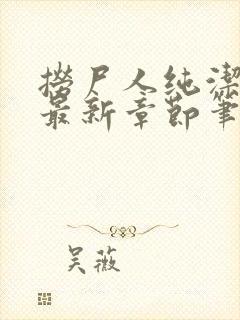 捞尸人纯洁
最新章节笔
吴薇